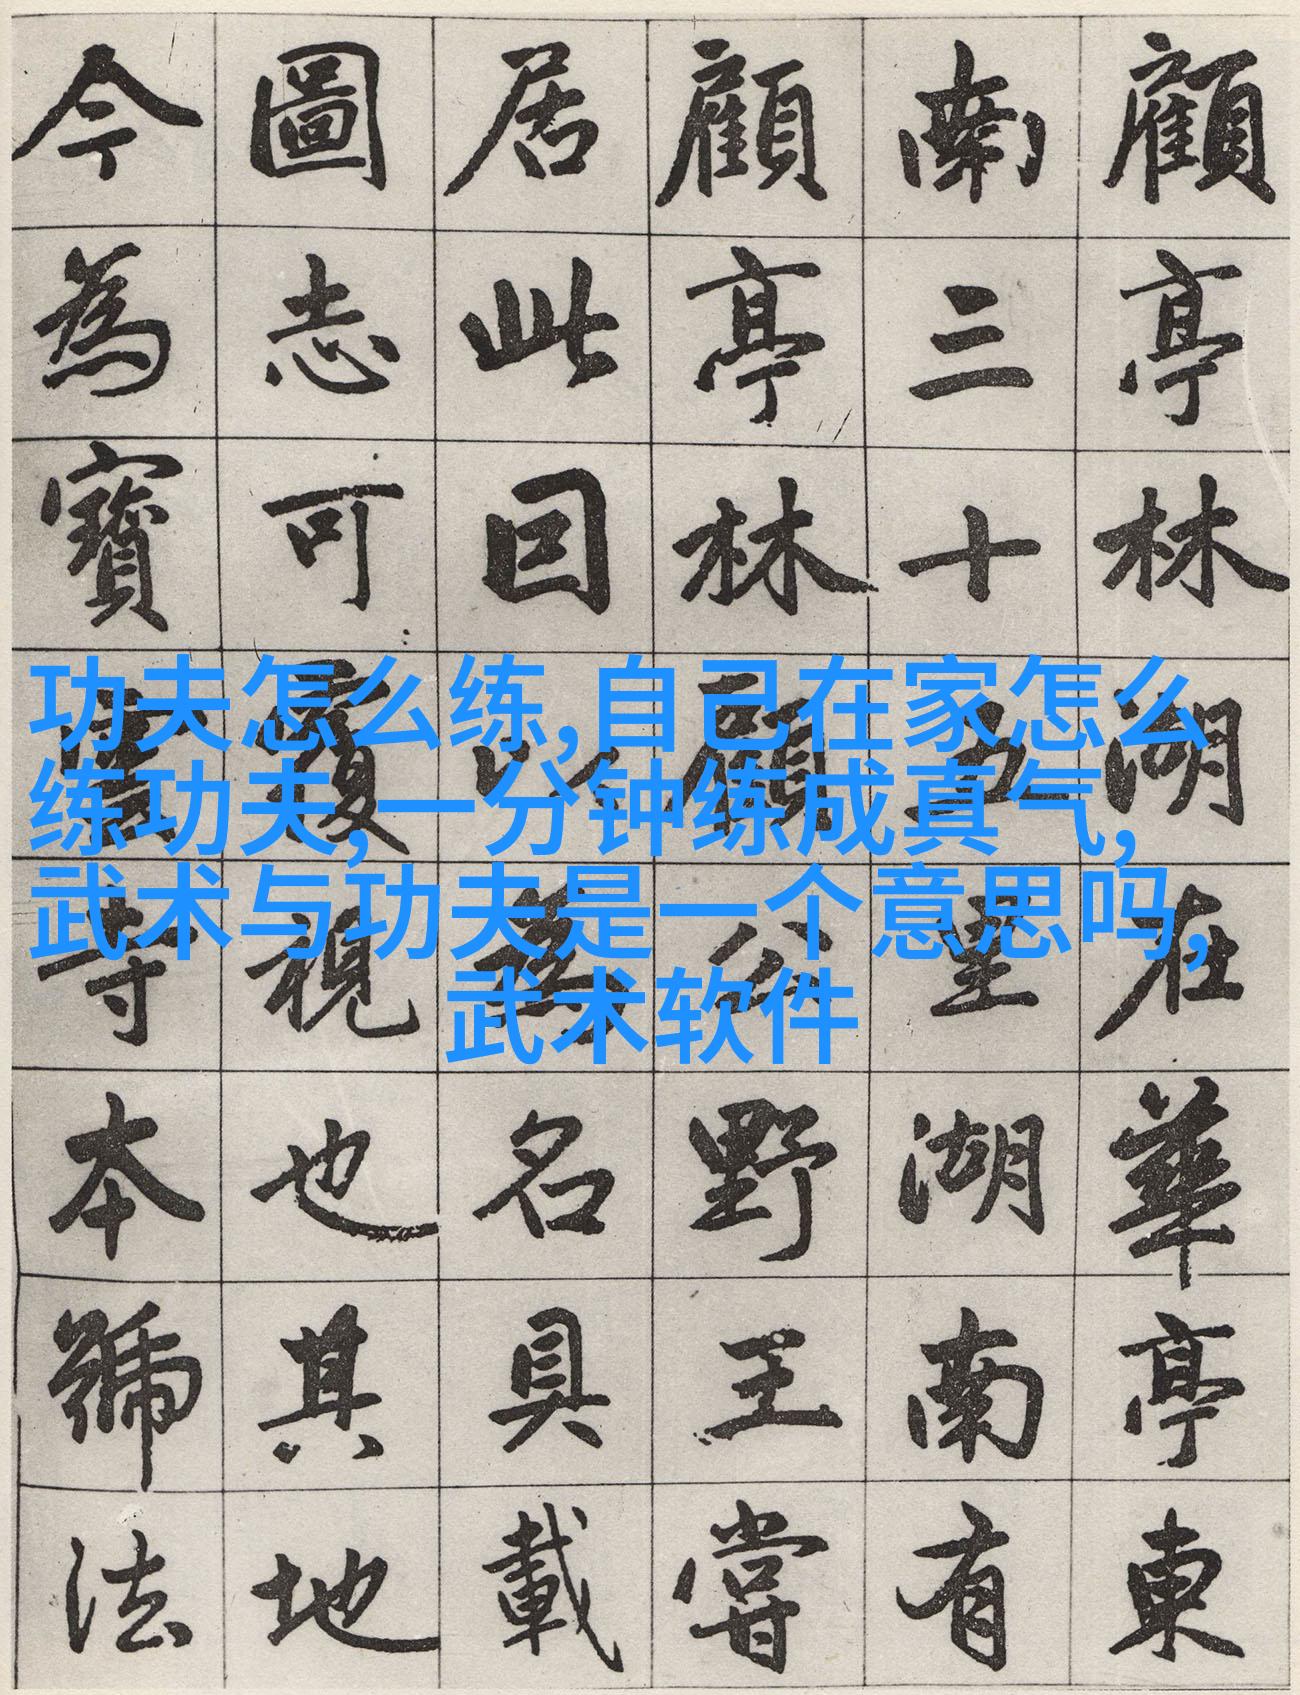 顧亭林湖在華亭東
南三十五里湖南有
顧亭林顧公野王嘗
居此因以爲名具載
圖志可覆視也其地
今為寶雲寺本號法
功夫怎么练,自己在家怎么
练功夫,一分钟练成真气,
武术与功夫是一个意思吗,
武术软件